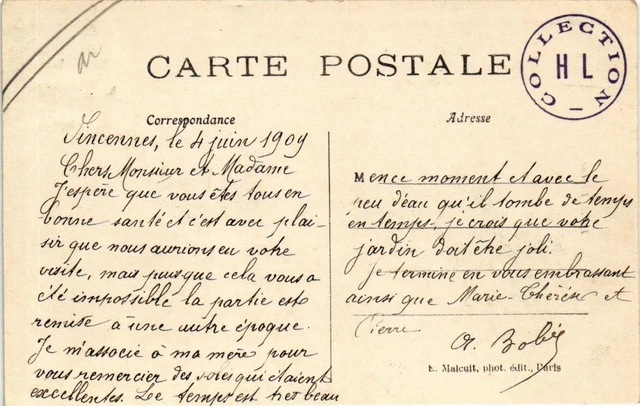 CARTE POSTALE
COLLECTION
H L
Correspondance
Vincennes, le 4 juin 1909
Chers Monsieur et Madame
J'espère que vous êtes tous en
bonne santé et c'est avec plai-
sir que nous aurions eu votre
visite, mais puisque cela vous a
été impossible la partie est
remise à une autre époque.
Je m'associe à ma mère pour
vous remercier des soles qui étaient
excellentes. Le temps est très beau
Adresse
M en ce moment et avec le
peu d'eau qu'il tombe de temps
en temps, je crois que votre
jardin doit être joli.
Je termine en vous embrassant
ainsi que Marie-Thérèse et
Pierre
E. Malcuit, phot. édit., Paris